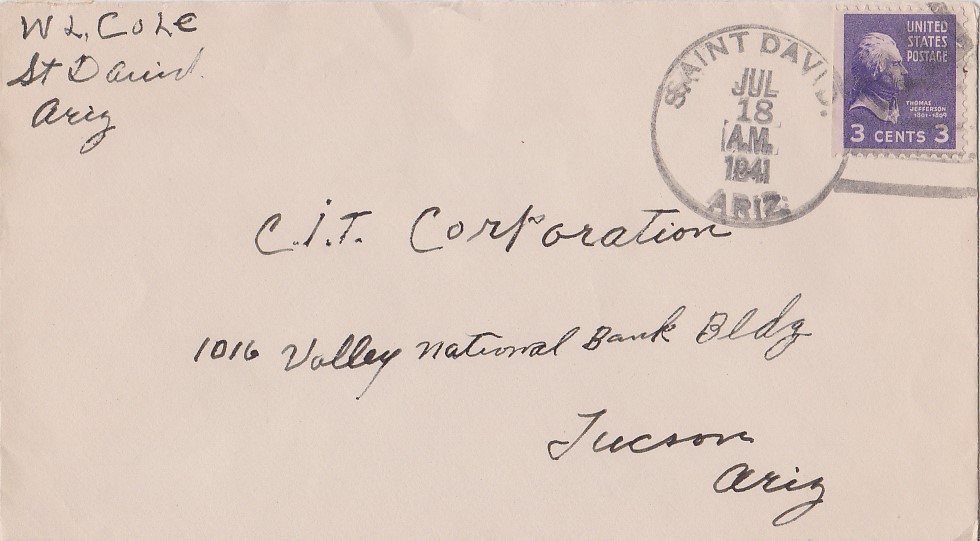 W L, COLE
St David.
Ariz
SAINT DAVID.
JUL
18
A.M.
1941
ARIZ.
UNITED
STATES
POSTAGE
THOMAS
JEFFERSON
1801-1809
3 CENTS 3
C.I.T. Corporation
1016 Valley National Bank Bldg
Tucson
Ariz